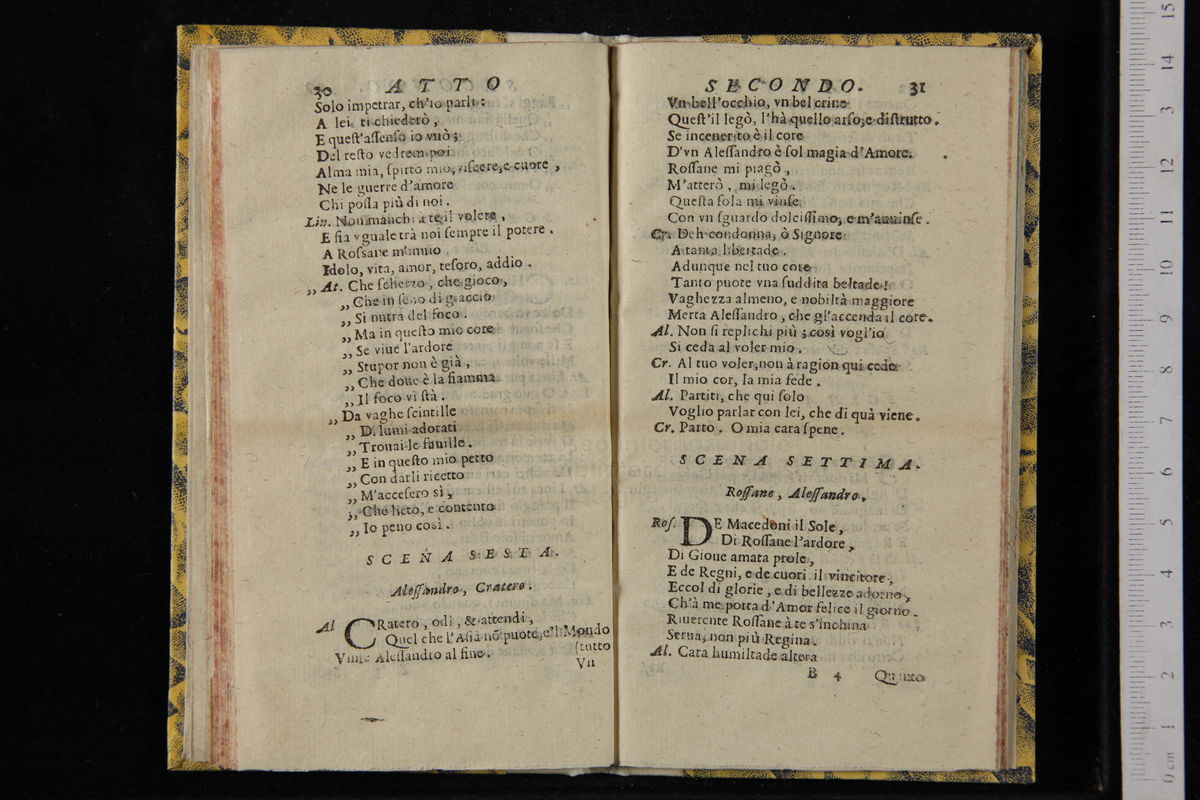 30 ATTO
Solo impetrar, ch'io parli:
A lei ti chiederò;
E quest'assenso io vuò;
Del resto vedrem poi.
Alma mia, spirto mio, viscere, e cuore,
Ne le guerre d'amore
Chi possa più di noi.
Lin. Non manchi à te il volere,
E sia vguale trà noi sempre il potere.
A Rossane m'inuio
Idolo, vita, amor, tesoro, addio.
„ At. Che scherzo, che gioco,
„ Che in seno di giaccio
„ Si nutra del foco.
„ Ma in questo mio core
„ Se viue l'ardore
„ Stupor non è già,
„ Che doue è la fiamma
„ Il foco vi stà.
„ Da vaghe scintille
„ Di lumi adorati
„ Trouai le fauille.
„ E in questo mio petto
„ Con darli ricetto
„ M'accesero sì,
„ Che lieto, e contento
„ Io peno così.
SCENA SESTA.
Alessandro, Cratero.
Al CRatero, odi, & attendi,
Quel che l'Asia nō puote, e'l Mondo
(tutto
Vinse Alessandro al fine.
Vn
SECONDO. 31
Vn bell'occhio, vn bel crine
Quest'il legò, l'hà quello arso, e distrutto.
Se incenerito è il core
D'vn Alessandro è sol magia d'Amore.
Rossane mi piagò,
M'atterò, mi legò.
Questa sola mi vinse
Con vn sguardo dolcissimo, e m'auuinse.
Cr. Deh condonna, ò Signore
A tanta libertade.
Adunque nel tuo core
Tanto puote vna suddita beltade!
Vaghezza almeno, e nobiltà maggiore
Merta Alessandro, che gl'accenda il core.
Al. Non si replichi più; così vogl'io
Si ceda al voler mio.
Cr. Al tuo voler, non à ragion qui cede
Il mio cor, la mia fede.
Al. Partiti, che qui solo
Voglio parlar con lei, che di quà viene.
Cr. Parto. O mia cara spene.
SCENA SETTIMA.
Rossane, Alessandro.
Ros. DE Macedoni il Sole,
Di Rossane l'ardore,
Di Gioue amata prole,
E de Regni, e de cuori il vincitore,
Eccol di glorie, e di bellezze adorno,
Ch'à me porta d'Amor felice il giorno.
Riuerente Rossane à te s'inchina
Serua, non più Regina.
Al. Cara humiltade altera
B 4 Quinto